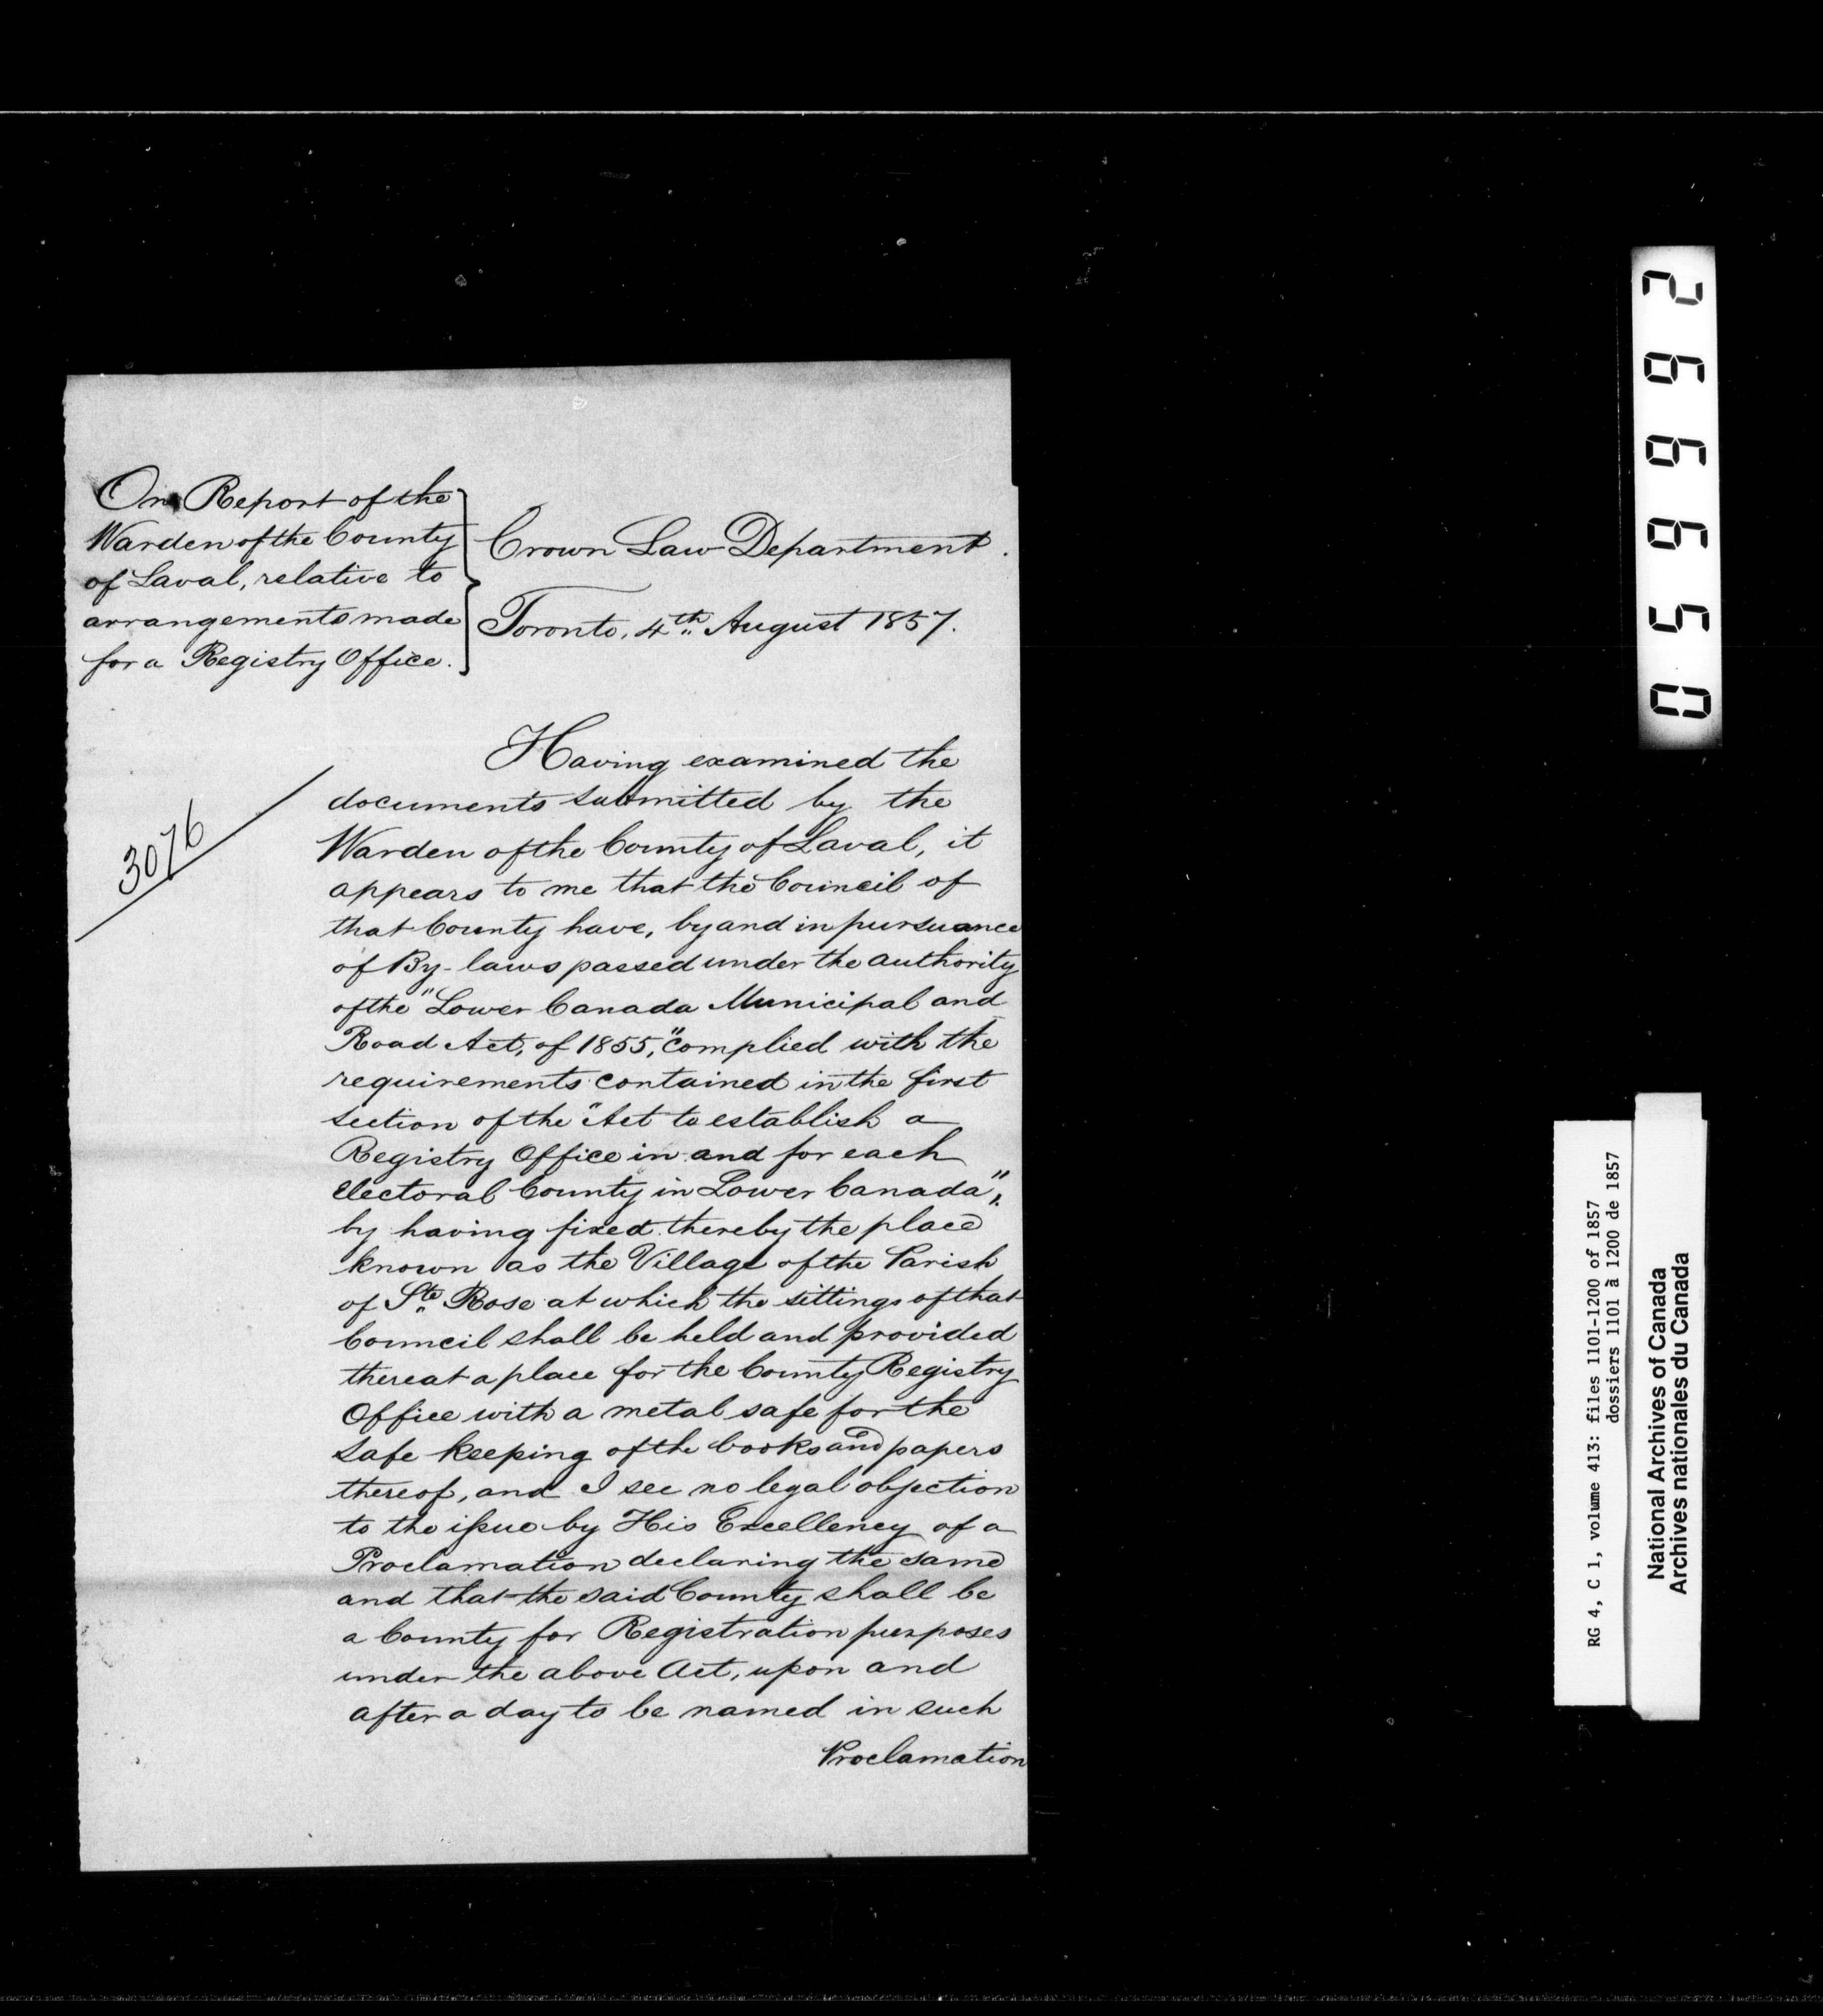 On Report of the
Warden of the County
of Laval, relative to
arrangements made
for a Registry Office.
Crown Law Department.
Toronto, 4th August 1857.
3076
Having examined the
documents submitted by the
Warden of the County of Laval, it
appears to me that the Council of
that County have, by and in pursuance
of By-laws passed under the authority
of the "Lower Canada Municipal and
Road Act, of 1855," complied with the
requirements contained in the first
section of the "Act to establish a
Registry Office in and for each
Electoral County in Lower Canada",
by having fixed thereby the place
known as the Village of the Parish
of Ste Rose at which the sittings of that
Council shall be held and provided
thereat a place for the County Registry
Office with a metal safe for the
safe keeping of the books and papers
thereof, and I see no legal objection
to the issue by His Excellency of a
Proclamation declaring the same
and that the said County shall be
a County for Registration purposes
under the above Act, upon and
after a day to be named in such
Proclamation
266650
RG 4, C 1, volume 413: files 1101-1200 of 1857
dossiers 1101 à 1200 de 1857
National Archives of Canada
Archives nationales du Canada